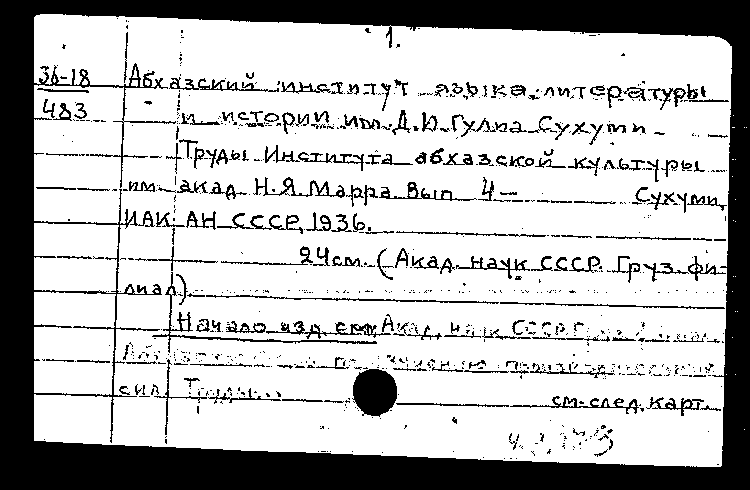 1.
36-18 Абхазский институт языка, литературы
483 и истории им. Д.И. Гулиа Сухуми -
Труды Института абхазской культуры
им. акад. Н.Я. Марра. Вып. 4 — Сухуми,
ИАК АН СССР, 1936.
24см. (Акад. наук СССР. Груз. фи-
лиал).
Начало изд. см. Акад. наук СССР. Груз. филиал.
по изучению производительных
сил. Труды...
см. след. карт.